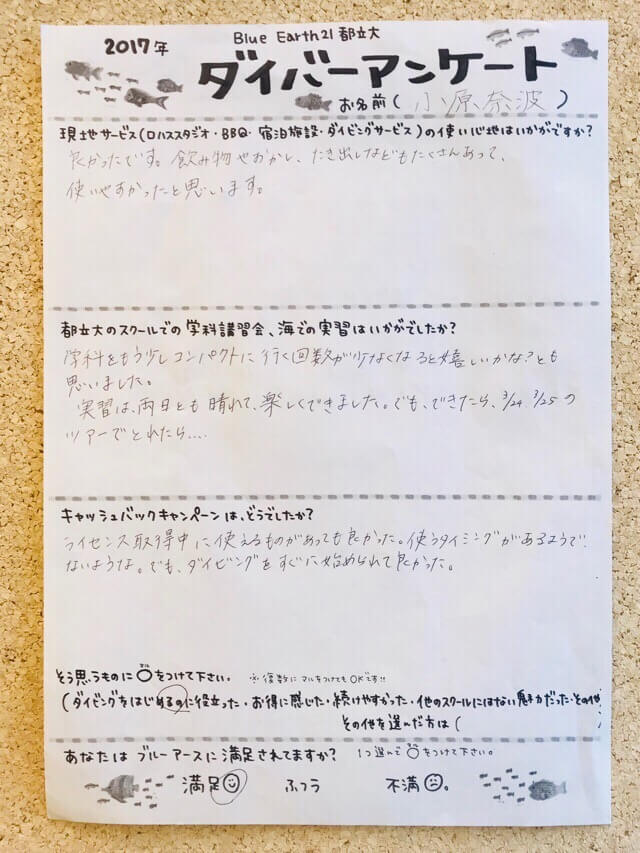 2017年
Blue Earth21 都立大
ダイバーアンケート
お名前( 小原奈波 )
現地サービス(ロハススタジオ・BBQ・宿泊施設・ダイビングサービス)の使い心地はいかがですか?
良かったです。飲み物やおかし、たき出しなどもたくさんあって、
使いやすかったと思います。
都立大のスクールでの学科講習会、海での実習はいかがでしたか?
学科をもう少しコンパクトに行く回数が少なくなると嬉しいかな?とも
思いました。
実習は、両日とも晴れて、楽しくできました。でも、できたら、3/24 3/25の
ツアーでとれたら....
キャッシュバックキャンペーンは、どうでしたか?
ライセンス取得中に使えるものがあっても良かった。使うタイミングがあるようで
ないような。でも、ダイビングをすぐに始められて良かった。
そう思うものに○をつけて下さい。 ※複数にマルをつけてもOKです!!
(ダイビングをはじめるのに役立った・お得に感じた・続けやすかった・他のスクールにはない魅力だった・その他
その他を選んだ方は(
あなたはブルーアースに満足されてますか? 1つ選んで○をつけて下さい。
満足 ふつう 不満。